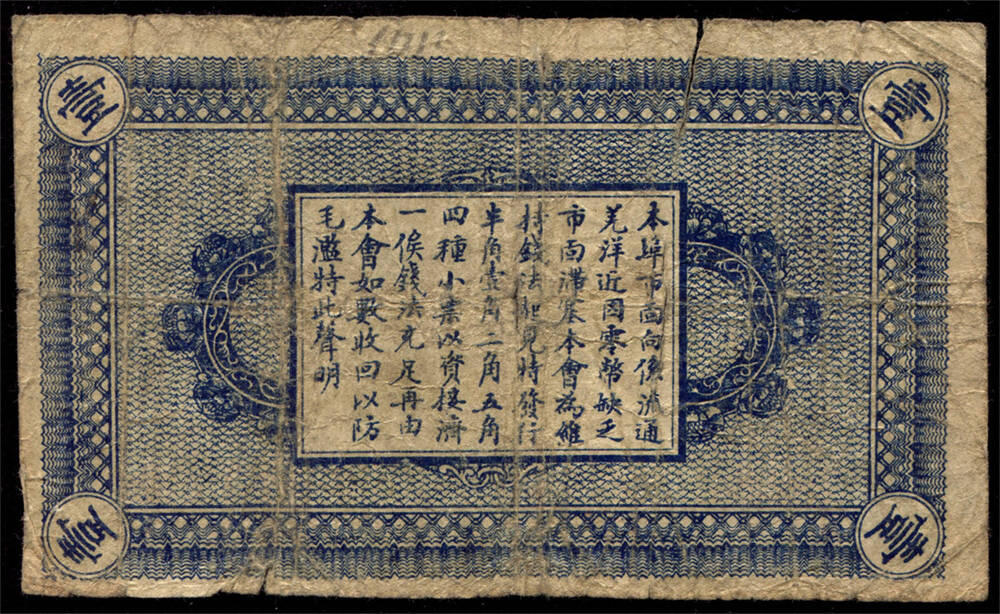 壹
壹
本埠市面向係流通
羌洋近因零幣缺乏
市面滯塞本會為維
持錢法起見特發行
半角壹角二角五角
四種小票以資接濟
一俟錢法充足再由
本會如數收回以防
毛濫特此聲明
壹
壹